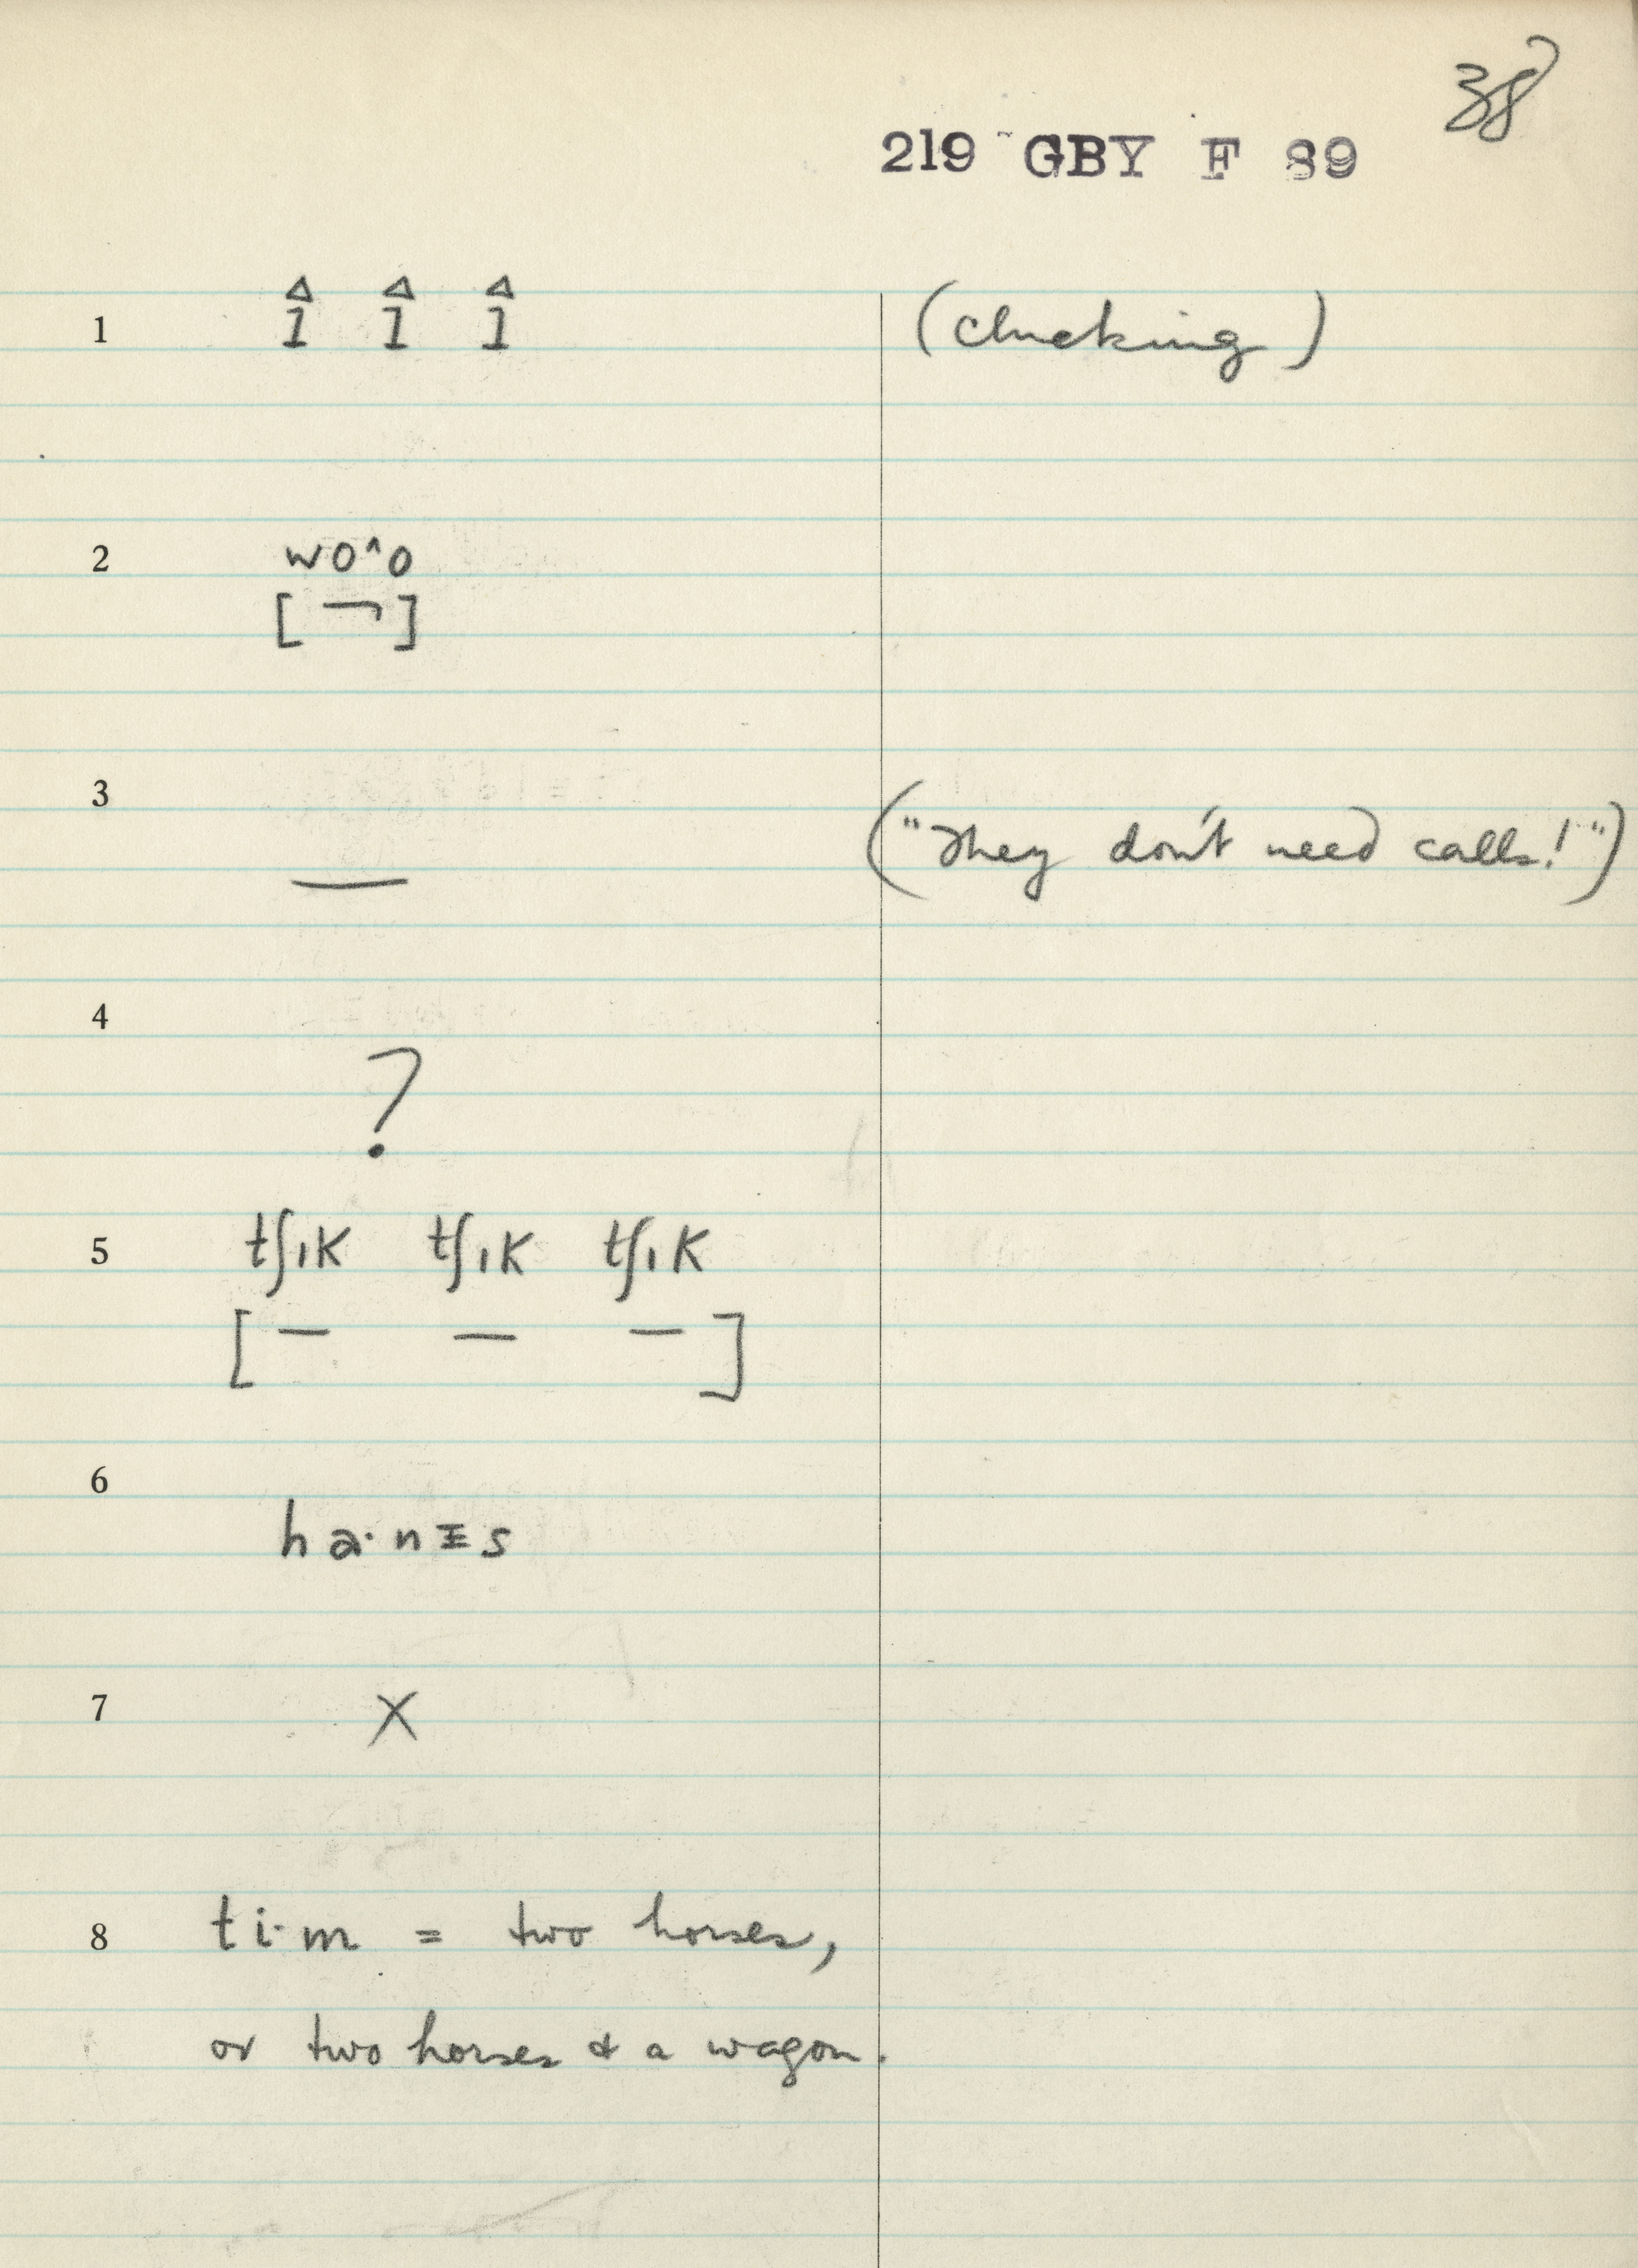 38
219 GBY F 89
1 î î î (clucking)
2 wo^o
[ ¬ ]
3 — ("They don't need calls!")
4 ?
5 tʃɪk tʃɪk tʃɪk
[ — — — ]
6 ha·nɪs
7 X
8 ti·m = two horses,
or two horses & a wagon.